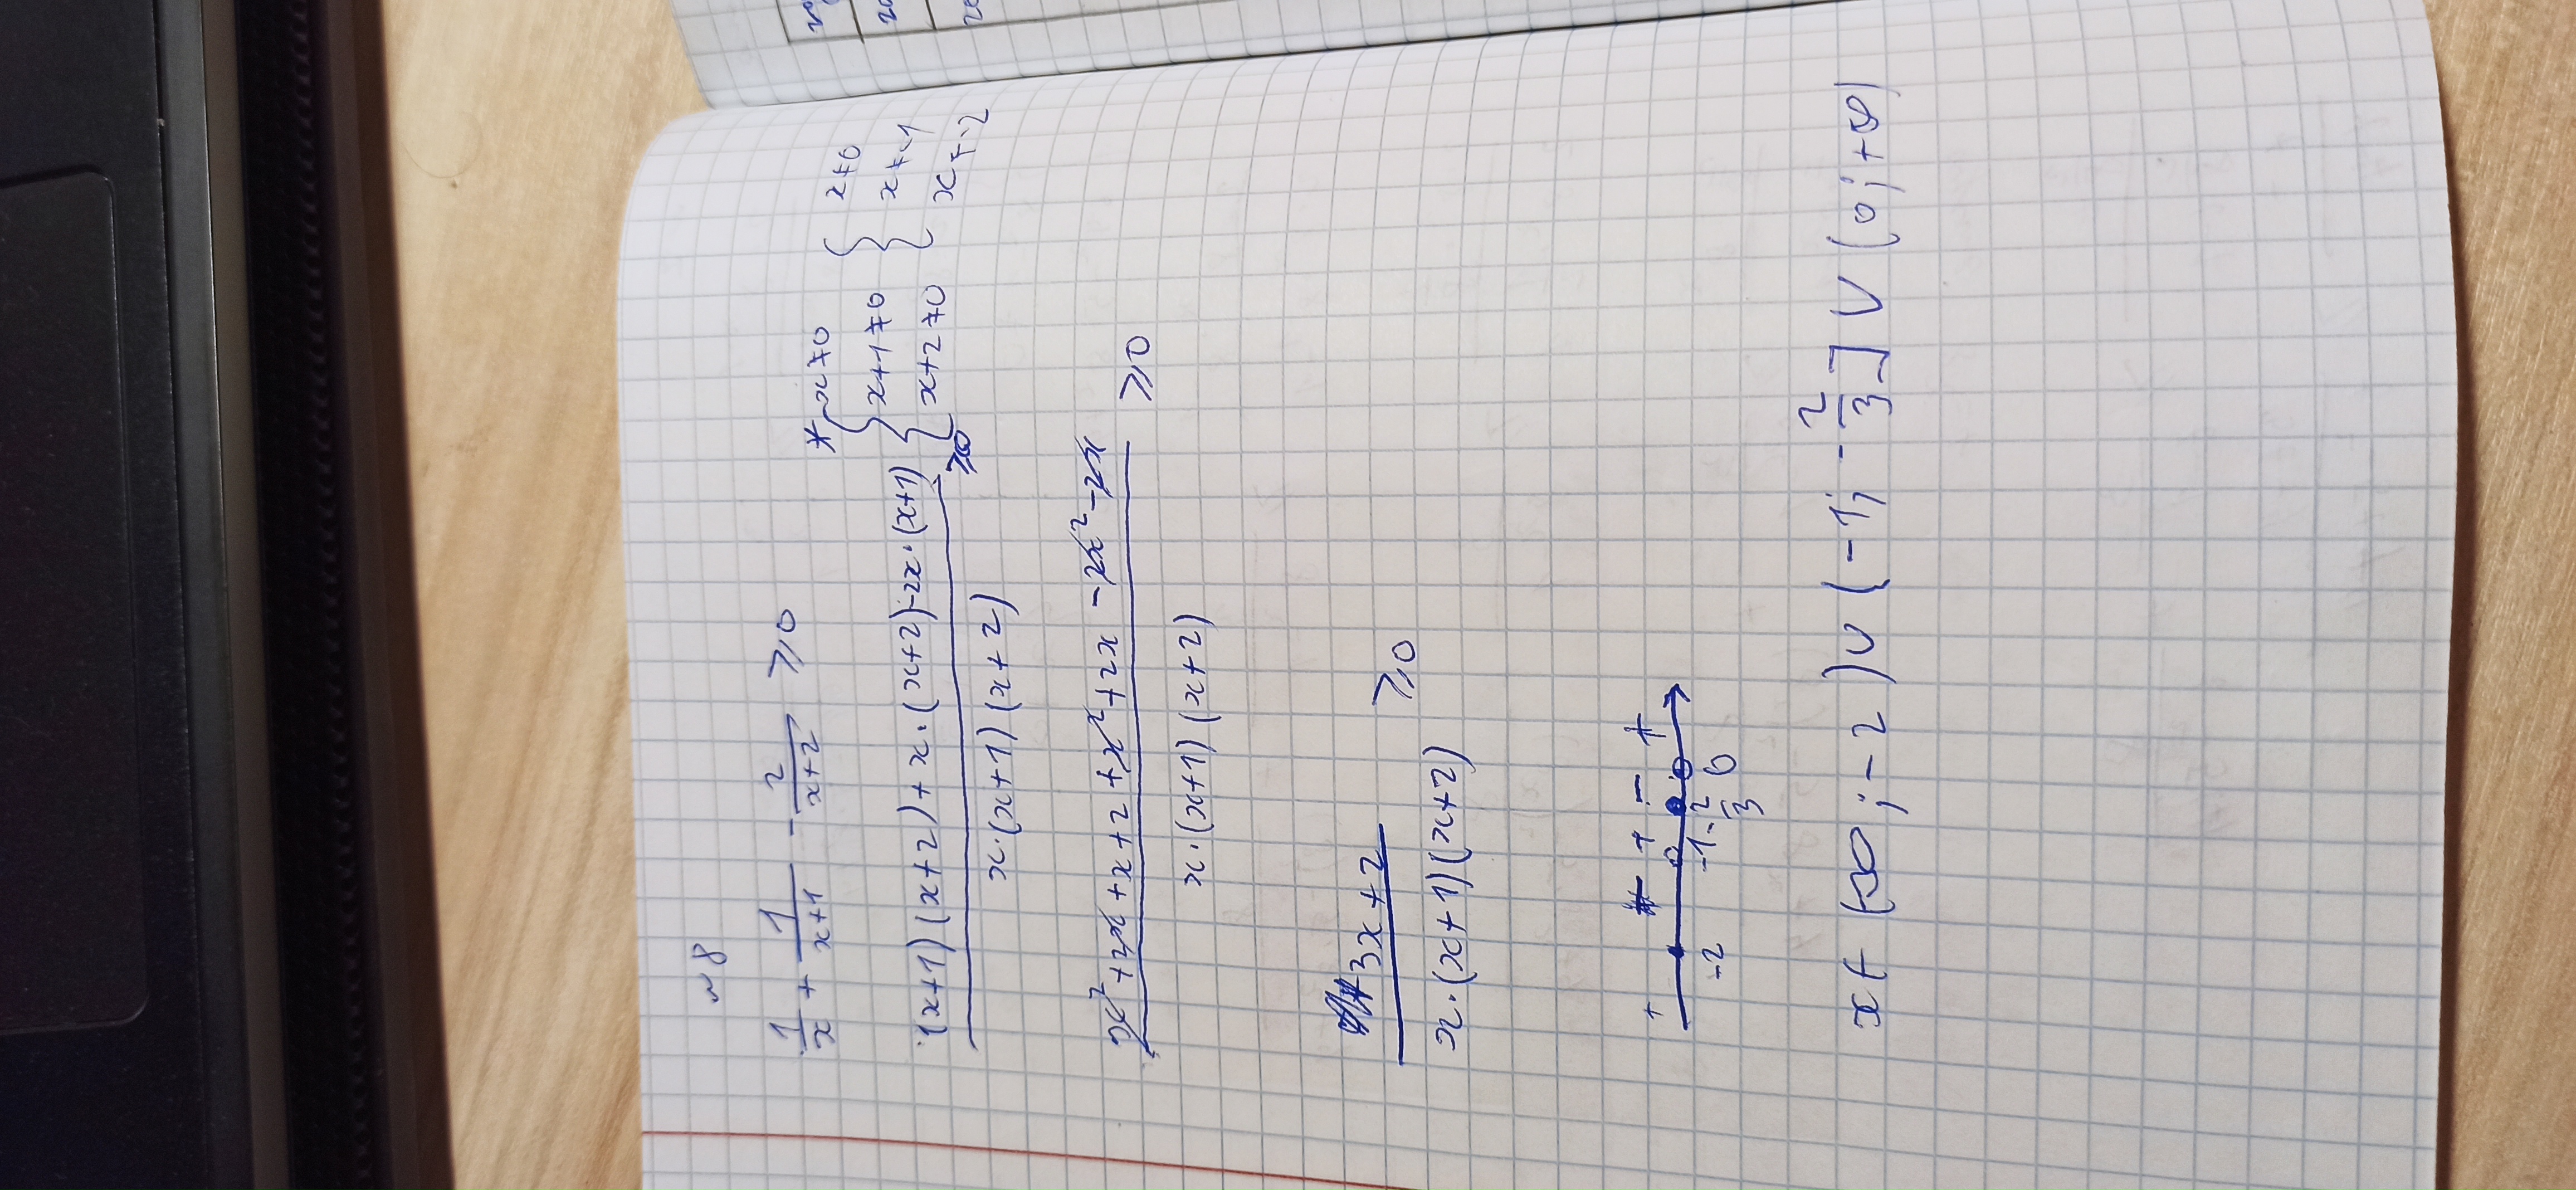 ~8
1/x + 1/(x+1) - 2/(x+2) ⩾0
((x+1)(x+2)+x·(x+2)-2x·(x+1))/(x·(x+1)(x+2)) ⩾0
* { x≠0 { x≠0
x+1≠0 x≠-1
x+2≠0 x≠-2
(x²+2x+x+2+x²+2x-2x²-2x)/(x·(x+1)(x+2)) ⩾0
(3x+2)/(x·(x+1)(x+2)) ⩾0
+ - + - +
-2 -1 -2/3 0
x∈ (-∞;-2)∪(-1;-2/3]∪(0;+∞)
20